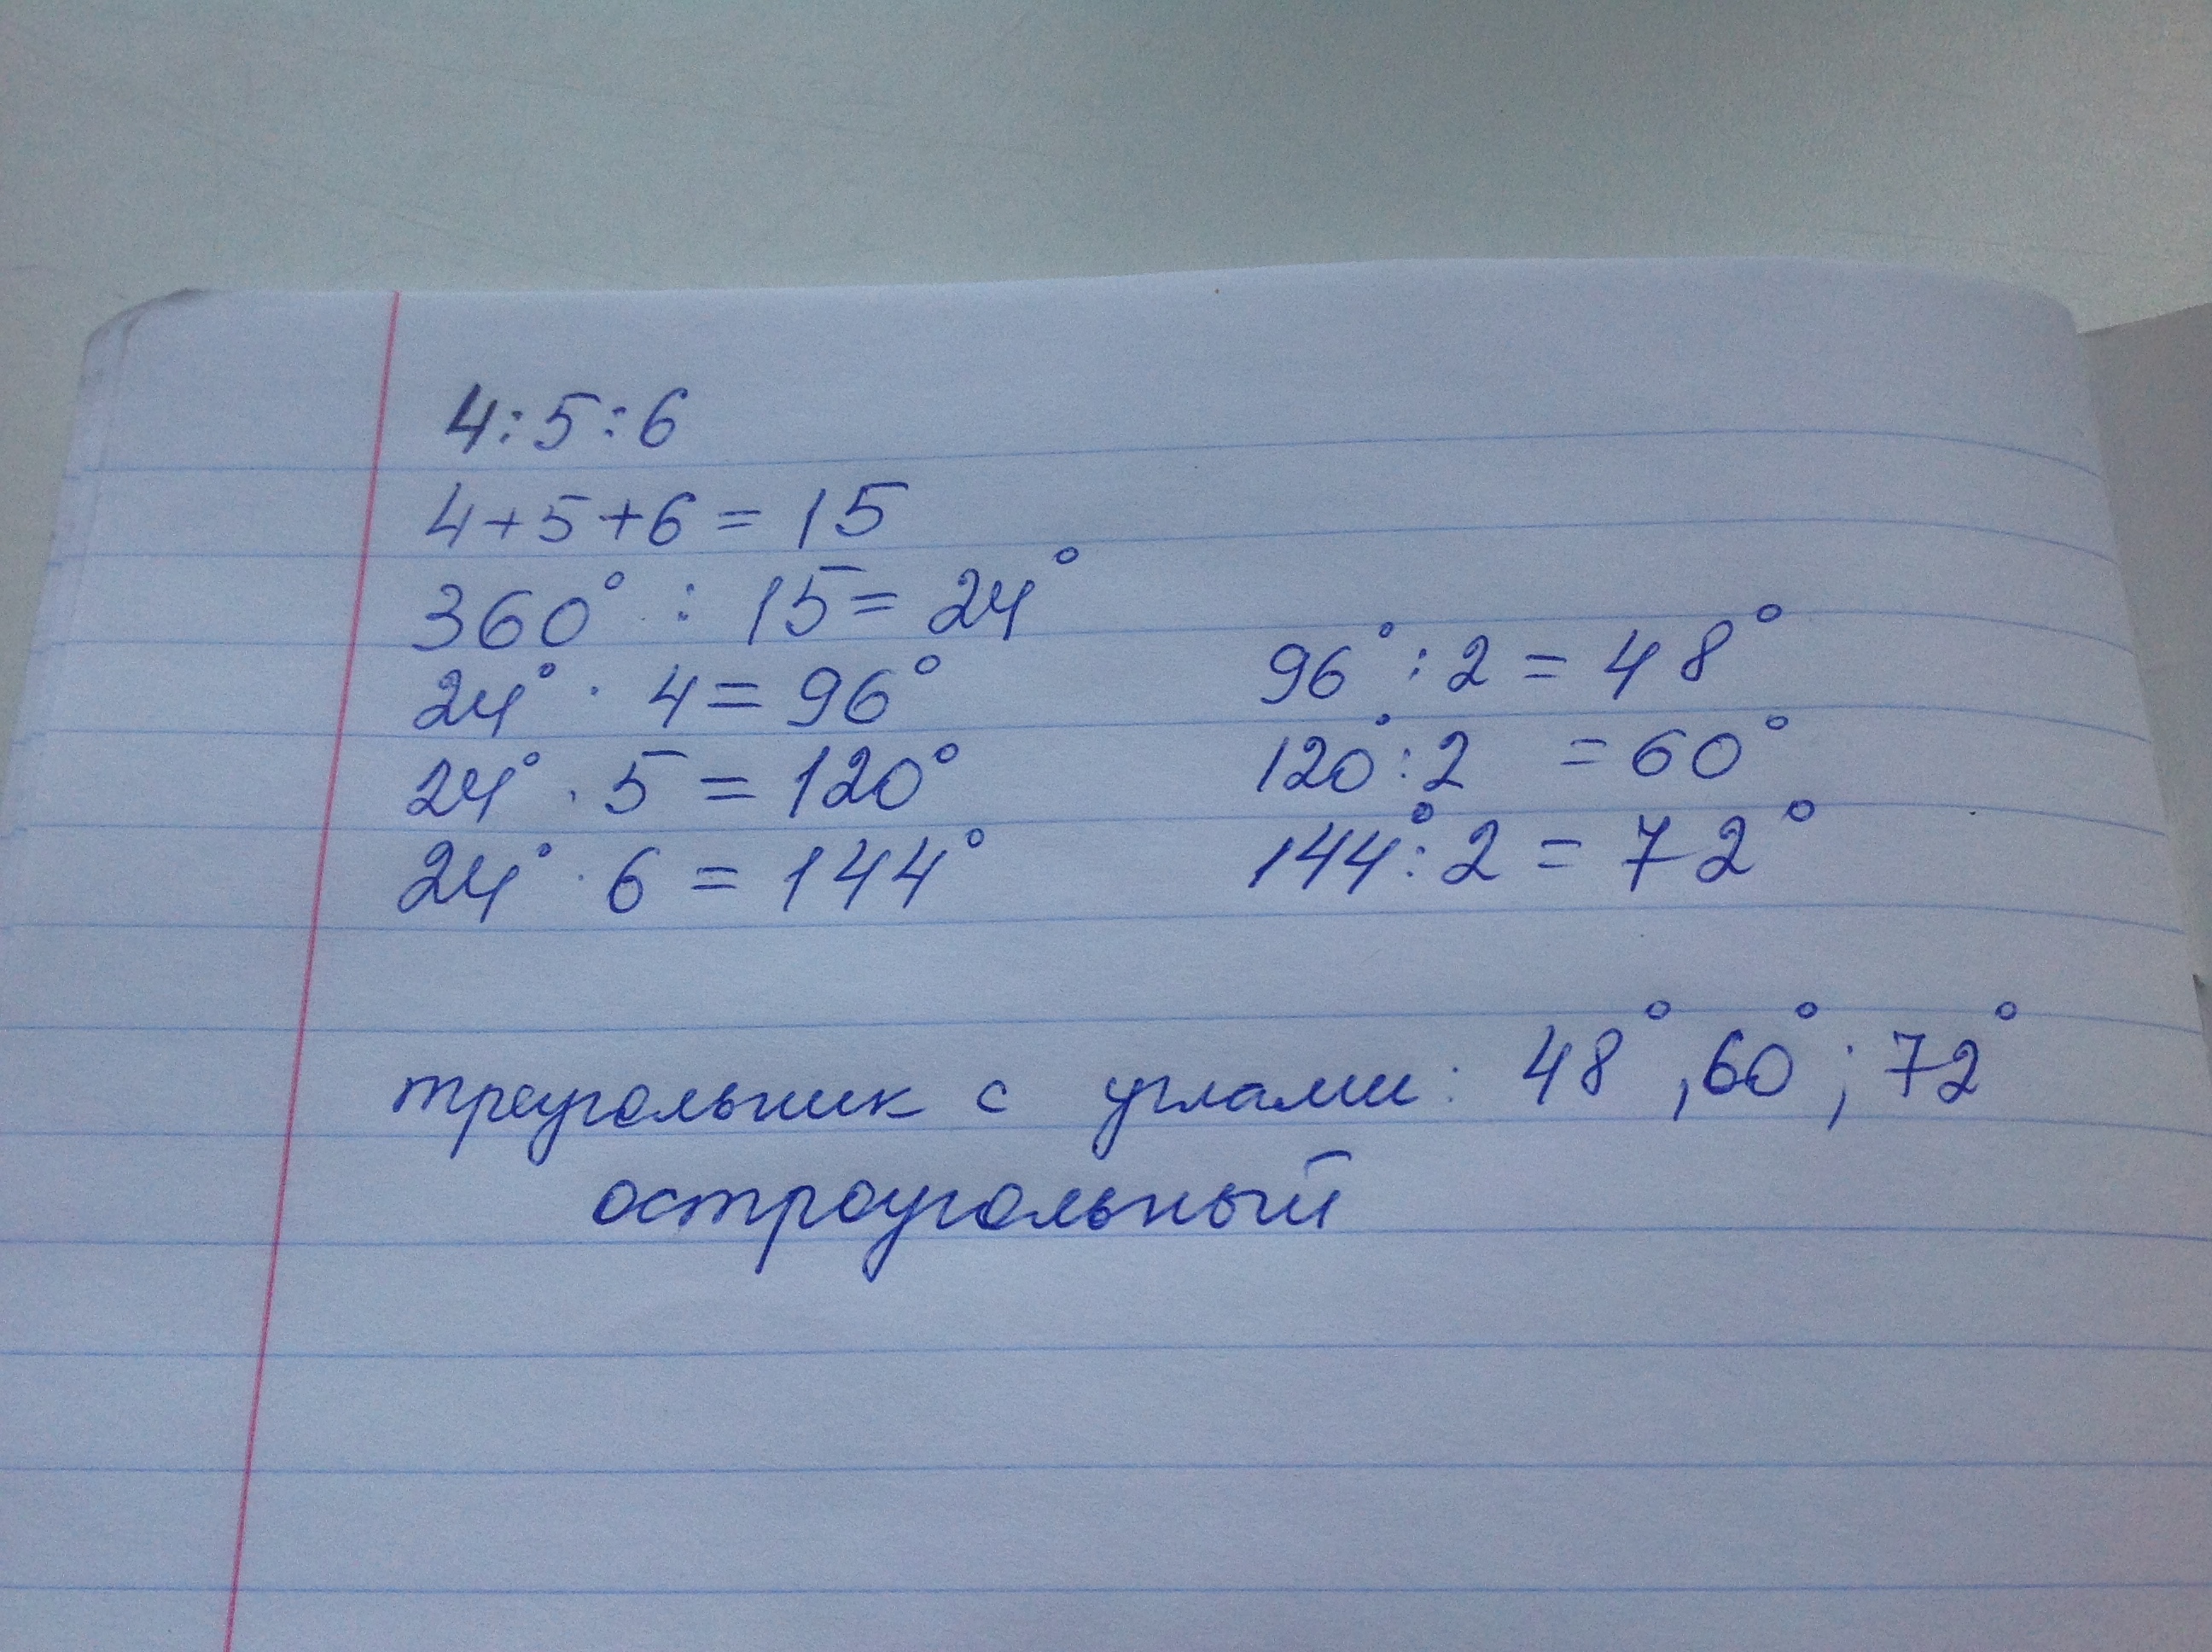 4:5:6
4+5+6 = 15
360° : 15 = 24°
24° · 4 = 96°
24° · 5 = 120°
24° · 6 = 144°
96° : 2 = 48°
120° : 2 = 60°
144° : 2 = 72°
треугольник с углами: 48°, 60°; 72°
остроугольный